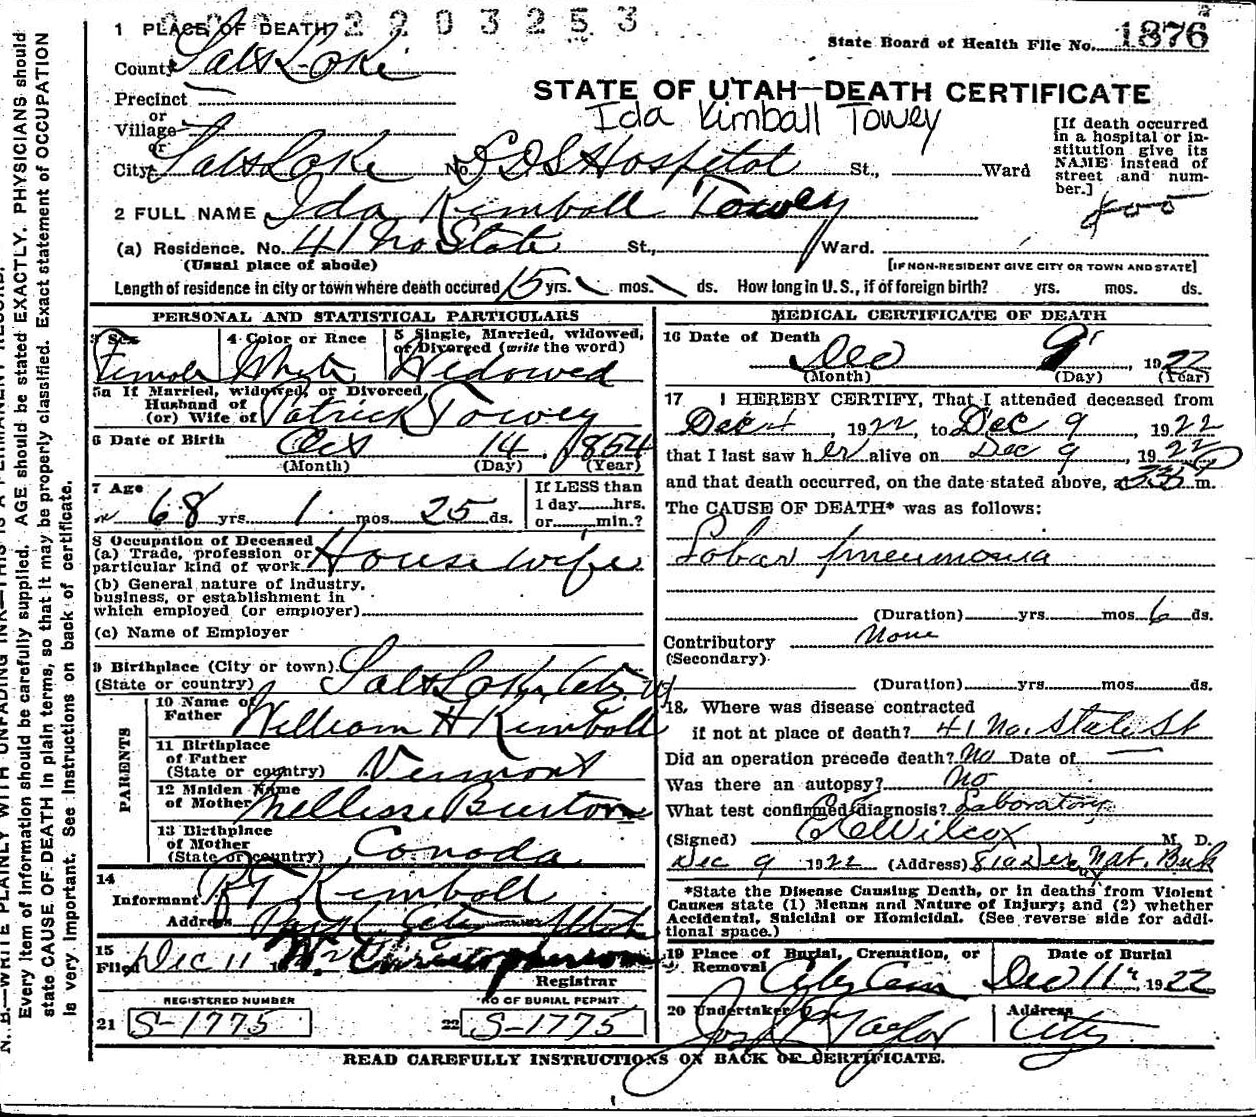 2203253
1 PLACE OF DEATH
State Board of Health File No. 1876
County Salt Lake
STATE OF UTAH—DEATH CERTIFICATE
Precinct
or
Village
or
Ida Kimball Towey
[If death occurred in a hospital or institution give its NAME instead of street and number.]
City Salt Lake No. L D S Hospital St., Ward
2 FULL NAME Ida Kimball Towey
(a) Residence. No. 41 No State St., Ward.
(Usual place of abode) [IF NON-RESIDENT GIVE CITY OR TOWN AND STATE]
Length of residence in city or town where death occured 15 yrs. mos. ds. How long in U. S., if of foreign birth? yrs. mos. ds.
PERSONAL AND STATISTICAL PARTICULARS
3 Sex Female
4 Color or Race White
5 Single, Married, widowed, or Divorced (write the word) Widowed
5a If Married, widowed, or Divorced
Husband of
(or) Wife of Patrick Towey
6 Date of Birth Oct 14, 1854
(Month) (Day) (Year)
7 Age 68 yrs. 1 mos. 25 ds.
If LESS than
1 day hrs.
or min.?
8 Occupation of Deceased
(a) Trade, profession or
particular kind of work Housewife
(b) General nature of industry,
business, or establishment in
which employed (or employer)
(c) Name of Employer
9 Birthplace (City or town) Salt Lake City Ut
(State or country)
PARENTS
10 Name of
Father William H Kimball
11 Birthplace
of Father
(State or country) Vermont
12 Maiden Name
of Mother Mellisse Burton
13 Birthplace
of Mother
(State or country) Canada
14
Informant R T Kimball
Address Park City Utah
15
Filed Dec 11 Christopherson
Registrar
REGISTERED NUMBER
21 S-1775
NO OF BURIAL PERMIT
22 S-1775
MEDICAL CERTIFICATE OF DEATH
16 Date of Death
Dec 9, 1922
(Month) (Day) (Year)
17 I HEREBY CERTIFY, That I attended deceased from
Dec 4, 1922, to Dec 9, 1922
that I last saw her alive on Dec 9, 1922
and that death occurred, on the date stated above, m.
The CAUSE OF DEATH* was as follows:
Lobar pneumonia
(Duration) yrs. mos. 6 ds.
Contributory None
(Secondary)
(Duration) yrs. mos. ds.
18. Where was disease contracted
if not at place of death? 41 No. State St
Did an operation precede death? No Date of
Was there an autopsy? No
What test confirmed diagnosis? Laboratory
(Signed) Wilcox M. D.
Dec 9 1922 (Address) 810 Deseret Nat. Bank
*State the Disease Causing Death, or in deaths from Violent
Causes state (1) Menns and Nature of Injury; and (2) whether
Accidental, Suicidal or Homicidal. (See reverse side for addi-
tional space.)
19 Place of Burial, Cremation, or
Removal City Cem
Date of Burial
Dec 11, 1922
20 Undertaker Taylor
Address
City
READ CAREFULLY INSTRUCTIONS ON BACK OF CERTIFICATE.
N. B.—WRITE PLAINLY WITH UNFADING INK—THIS IS A PERMANENT RECORD.
Every item of information should be carefully supplied. AGE should be stated EXACTLY. PHYSICIANS should
state CAUSE OF DEATH in plain terms, so that it may be properly classified. Exact statement of OCCUPATION
is very important. See instructions on back of certificate.